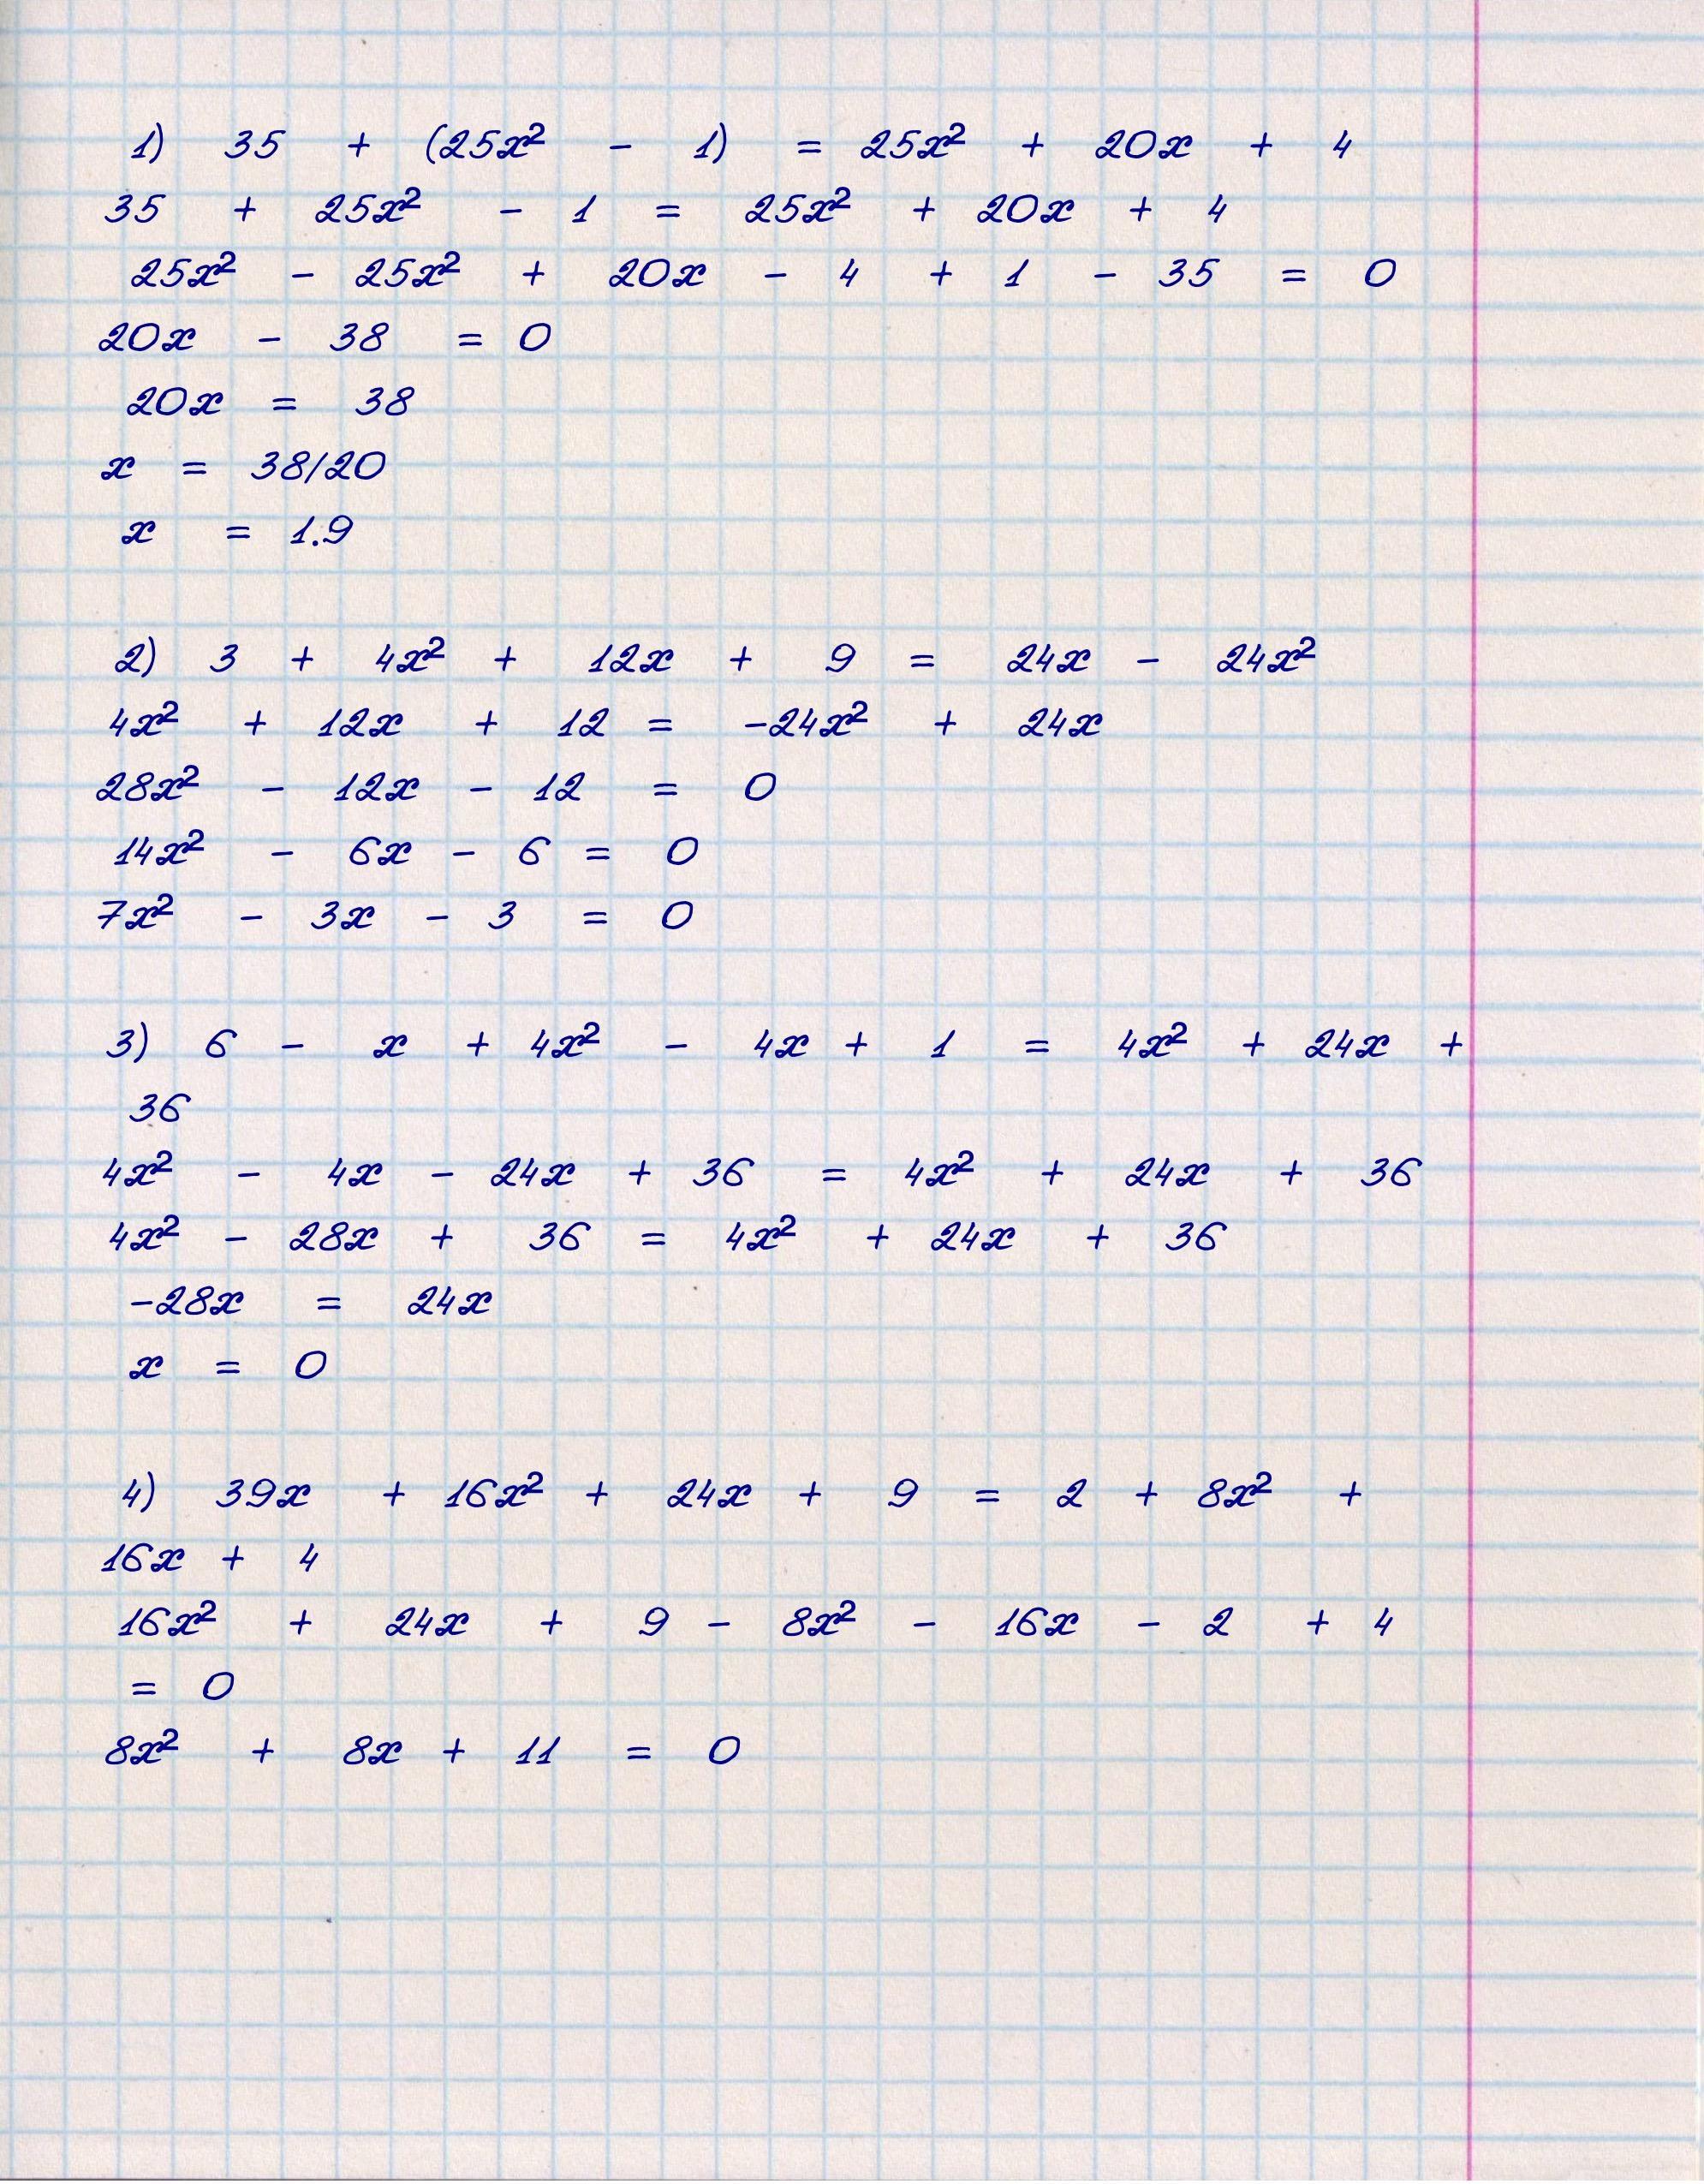 1) 35 + (25x² - 1) = 25x² + 20x + 4
35 + 25x² - 1 = 25x² + 20x + 4
25x² - 25x² + 20x - 4 + 1 - 35 = 0
20x - 38 = 0
20x = 38
x = 38/20
x = 1.9
2) 3 + 4x² + 12x + 9 = 24x - 24x²
4x² + 12x + 12 = -24x² + 24x
28x² - 12x - 12 = 0
14x² - 6x - 6 = 0
7x² - 3x - 3 = 0
3) 6 - x + 4x² - 4x + 1 = 4x² + 24x +
36
4x² - 4x - 24x + 36 = 4x² + 24x + 36
4x² - 28x + 36 = 4x² + 24x + 36
-28x = 24x
x = 0
4) 39x + 16x² + 24x + 9 = 2 + 8x² +
16x + 4
16x² + 24x + 9 - 8x² - 16x - 2 + 4
= 0
8x² + 8x + 11 = 0